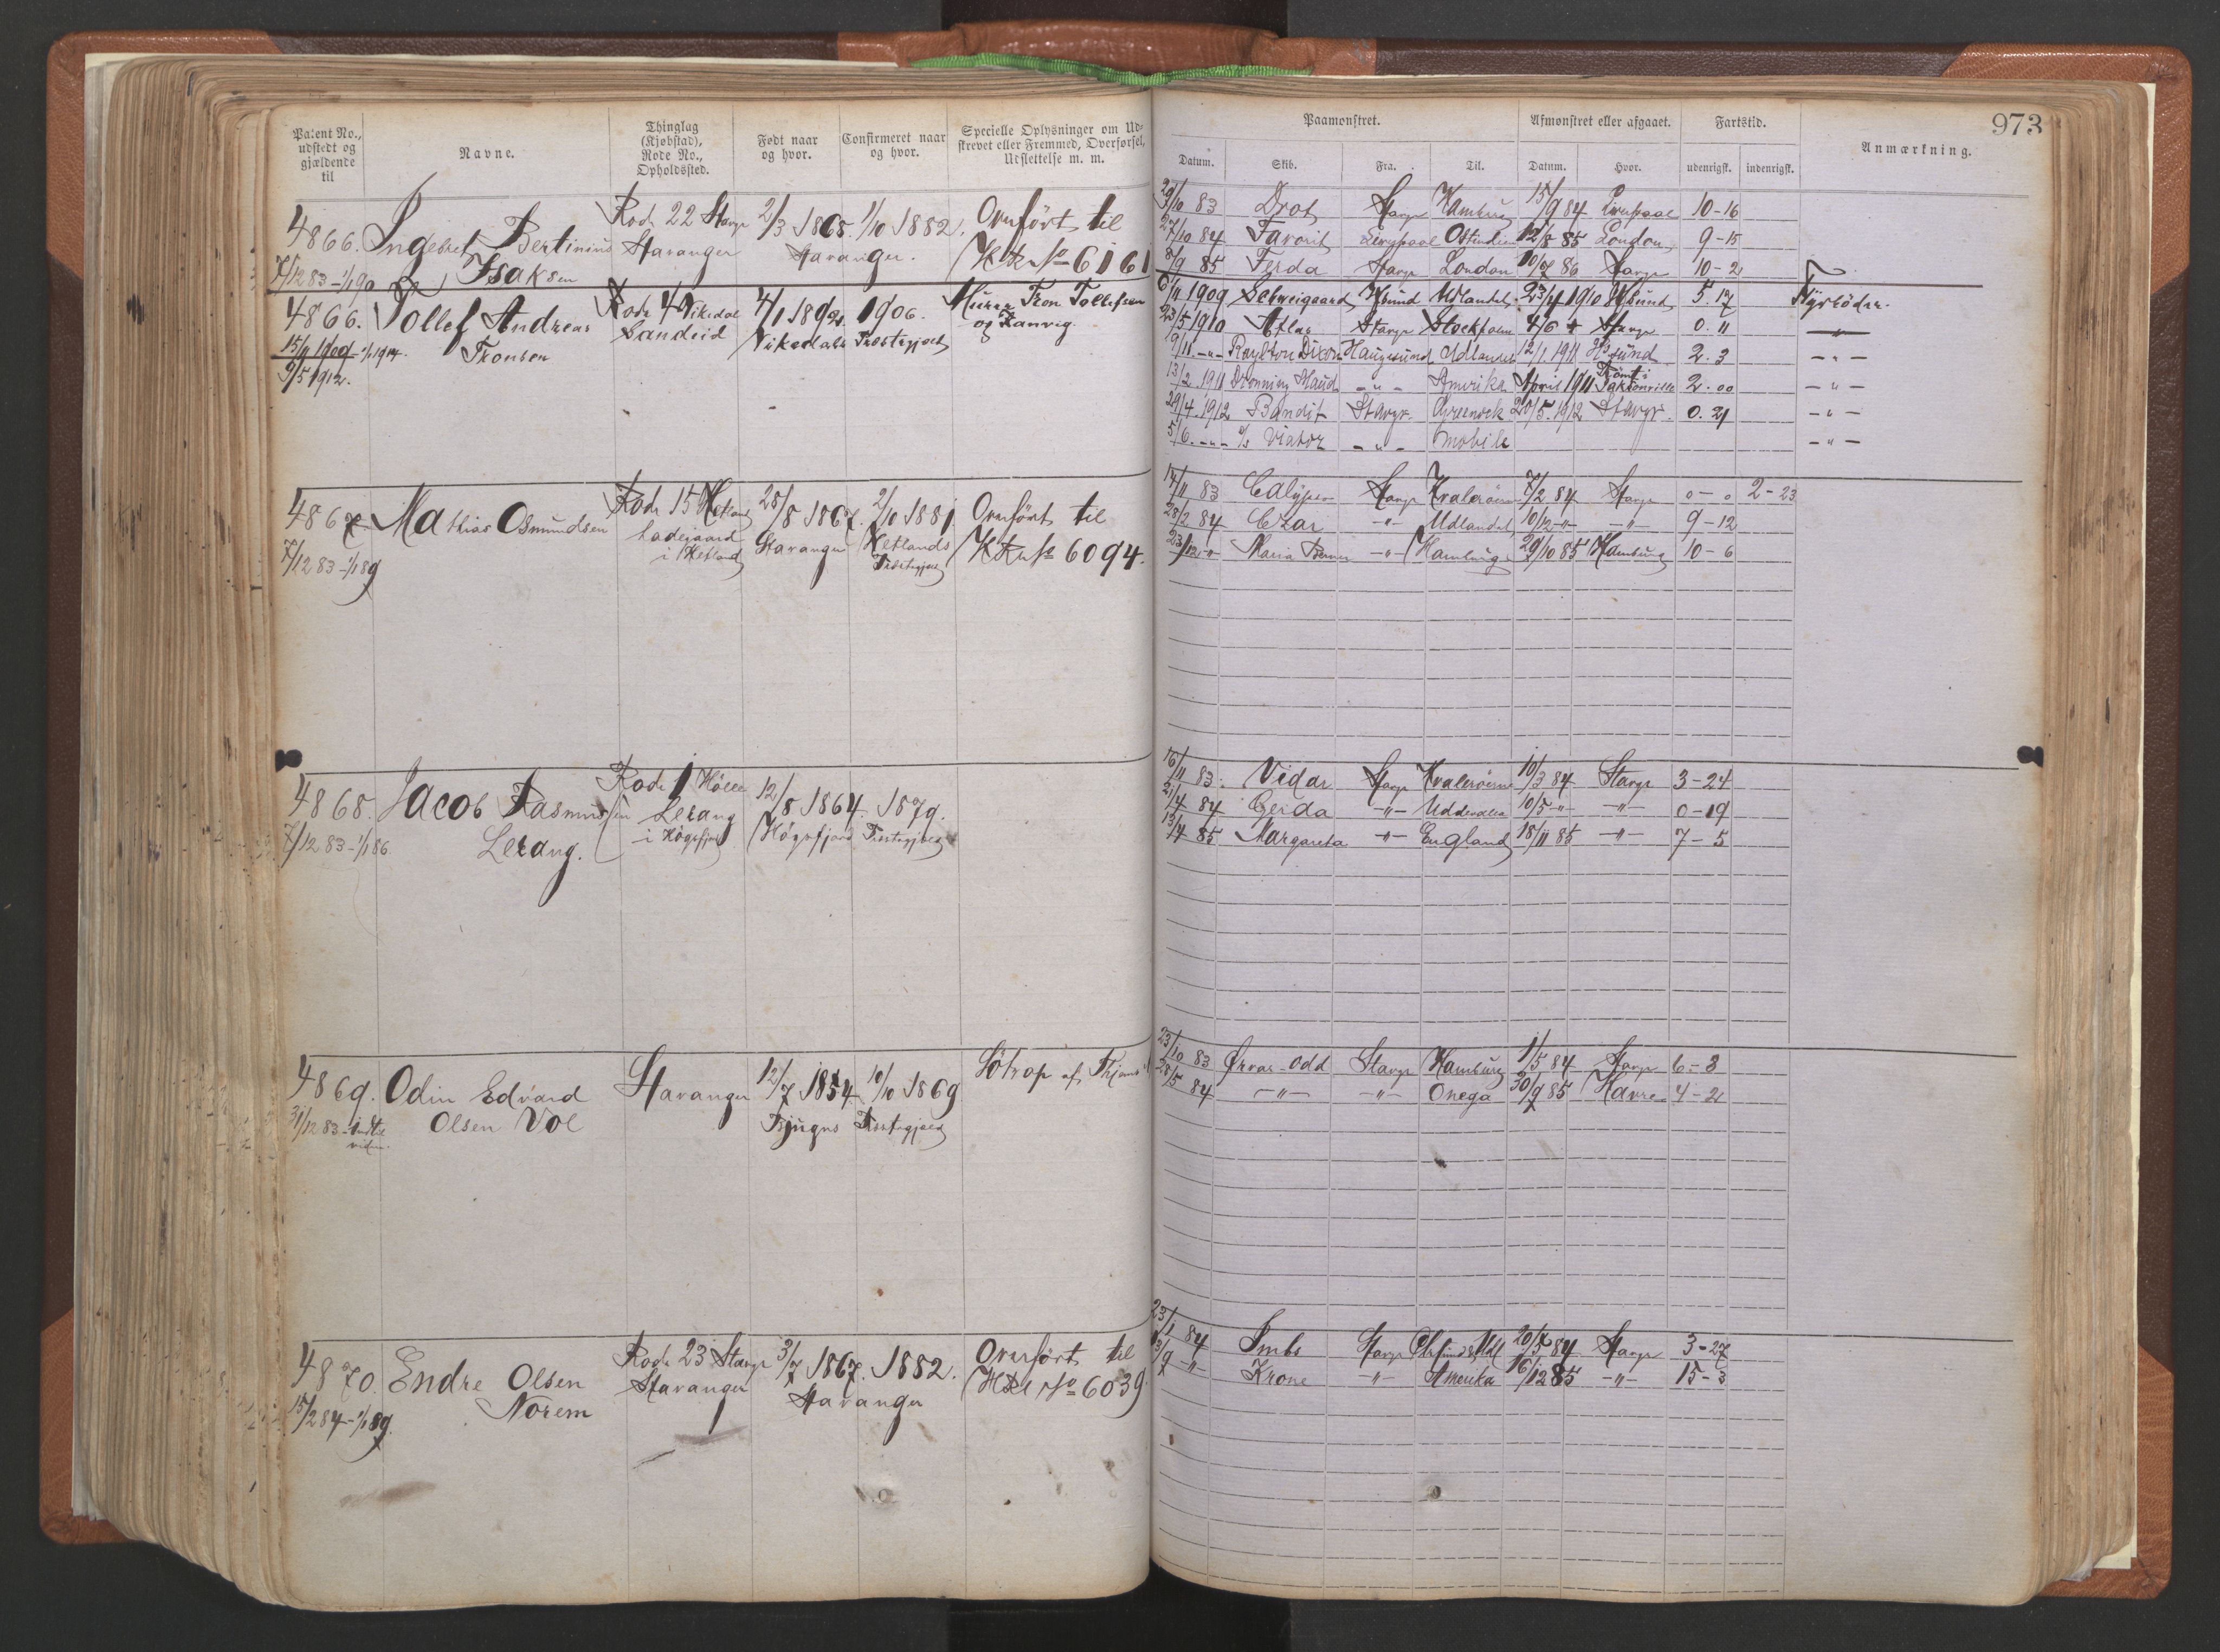 973
Patent No., udstedt og gjældende til
Navne.
Thinglag (Kjøbstad), Rode No., Opholdssted.
Født naar og hvor.
Confirmeret naar og hvor.
Specielle Oplysninger om Udskrevet eller Fremmed, Overførsel, Udslettelse m. m.
Paamønstret.
Afmønstret eller afgaaet.
Fartstid.
Anmærkning.
Datum. Skib. Fra. Til. Datum. Hvor. udenrigst. indenrigst.
4866. Ingebret Bertinius Isaksen
7/12 83 - 1/1 90
Rode 22 Stavgr Stavanger
2/3 1865. 1/10 1882.
Stavanger.
Overført til No 6161
29/10 83 Drot Stavgr Hamburg 15/9 84 Liverpool 10-16
27/10 84 Favorit Liverpool Ostindien 12/8 85 London 9-15
8/9 85 Ferda Stavgr London 10/7 86 Stavgr 10-2
4866. Tollef Andreas Tronsen
15/11 1909 - 1/1 1914.
9/5 1912.
Rode 4 Vikedal Sandeid
4/1 1892. 1906.
Vikedals Præstegjeld
Murer Tron Tollefsen og Ranvig.
6/11 1909 Schweigaard Hsund Udlandet 23/4 1910 Hsund 5. 17 Fyrbøder.
23/5 1910 Atlas Stavgr Stockholm 4/6 Stavgr 0. 11 - " -
19/11 - " - Roylston Dixon Haugesund Udlandet 12/1. 1911 Hsund 2. 3 - " -
13/2. 1911 Dronning Maud - " - Amerika April 1911 Rømt i Jaksonville 2. 00 - " -
29/4. 1912 Bandit Stavgr. Greenock 20/5. 1912 Stavgr. 0. 21 - " -
5/6. - " - Viator - " - Mobile - " -
4867 Mathias Osmundsen
7/12 83 - 1/1 89
Rode 15 Hetland Ladegaard i Hetland
28/8 1867. 2/10 1881.
Stavanger Hetlands Præstegjeld
Overført til No 6094.
14/11 83 Calypso Stavgr Kvalerøerne 7/2 84 Stavgr 0-0 2-23
28/2 84 Czar - " - Udlandet 10/12 - " - - " - 9-12
23/12 - " - Maria - " - Hamburg 29/10 85 Hamburg 10-6
4868. Jacob Rasmussen Lerang.
7/12 83 - 1/1 86.
Rode 1 Hølle Lerang i Høgsfjord
12/8 1864. 1879.
Høgsfjord Præstegjeld
16/11 83. Vidar Stavgr Kvalerøerne 10/3 84 Stavgr 3-24
21/4 84 Gerda - " - Uddevalla 10/5 - " - - " - 0-19
13/4 85 Margareta - " - England 18/11 85 - " - 7-5
4869. Odin Edvard Olsen Vol
31/12 83 - indtil videre
Stavanger
12/7 1854 10/10 1869
Præstegjeld
23/10 83 Ørvar-Odd Stavgr Hamburg 1/5 84 Stavgr 6-8
28/5 84 - " - - " - Onega 30/9 85 Havre 4-2
4870. Endre Olsen Norem
15/2 84 - 1/1 89.
Rode 23 Stavgr Stavanger
3/7 1867. 1882.
Stavanger
Overført til No 6039
23/1 84 Imbs Stavgr 20/5 84 Stavgr 3-27
13/9 - " - Krone - " - Amerika 16/12 85 - " - 15-3